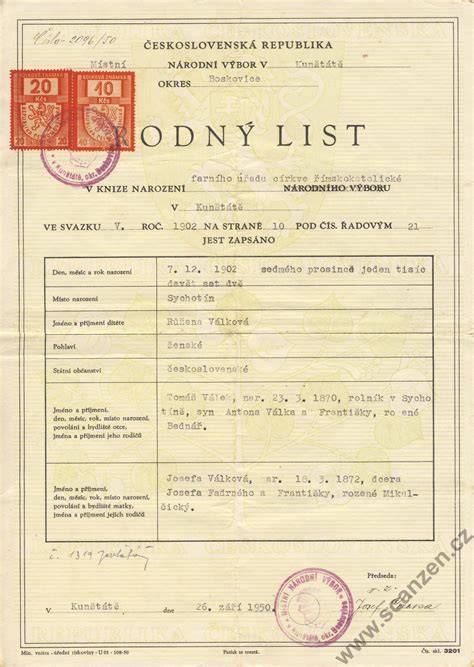 Číslo 2096/50
ČESKOSLOVENSKÁ REPUBLIKA
Místní NÁRODNÍ VÝBOR V Kunštátě
OKRES Boskovice
KOLKOVÁ ZNÁMKA KOLKOVÁ ZNÁMKA
20 10
Kčs Kčs
RODNÝ LIST
V KNIZE NAROZENÍ farního úřadu církve římskokatolické
NÁRODNÍHO VÝBORU
V Kunštátě
VE SVAZKU V. ROČ. 1902 NA STRANĚ 10 POD ČÍS. ŘADOVÝM 21
JEST ZAPSÁNO
Den, měsíc a rok narození 7. 12. 1902 sedmého prosince jeden tisíc
devět set dvě
Místo narození Sychotín
Jméno a příjmení dítěte Růžena Válková
Pohlaví ženské
Státní občanství československé
Jméno a příjmení,
den, měsíc, rok, místo narození,
povolání a bydliště otce,
jména a příjmení jeho rodičů
Tomáš Válek, nar. 23. 3. 1870, rolník v Sycho
tíně, syn Antona Válka a Františky, ro ené
Bednář.
Jméno a příjmení,
den, měsíc, rok, místo narození,
povolání a bydliště matky,
jména a příjmení jejich rodičů
Josefa Válková, ar. 18. 3. 1872, dcera
Josefa Fadrného a Františky, rozené Mikul-
čický.
č. 1319
V Kunštátě dne 26. září 1950.
MÍSTNÍ NÁRODNÍ VÝBOR
Předseda:
Josef
Min. vnitra - úřední tiskoviny - U 01 - 108-50
Padělek se trestá.
Čís. skl. 3201
www.scanzen.cz